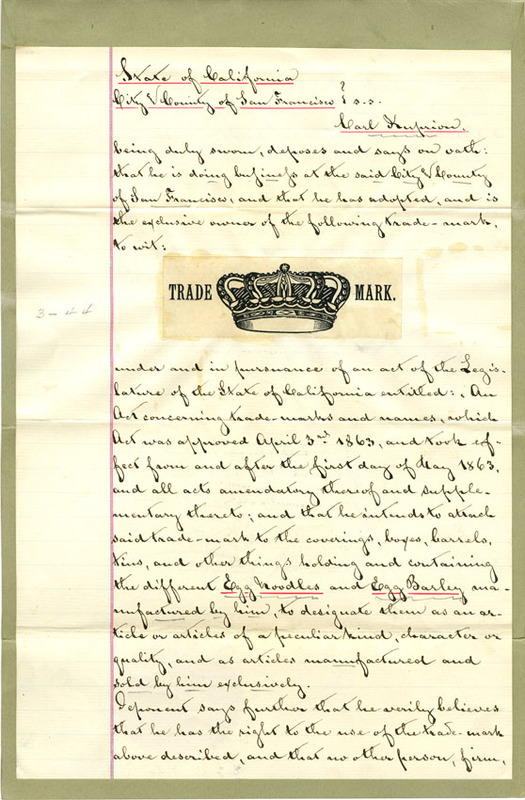 State of California
City & County of San Francisco } s.s.
Carl Kuprion,
being duly sworn, deposes and says on oath:
that he is doing business at the said City & County
of San Francisco, and that he has adopted, and is
the exclusive owner of the following trade-mark,
to wit:
TRADE MARK.
3-44
under and in pursuance of an act of the Legis-
lature of the State of California entitled: "An
Act concerning trade-marks and names, which
Act was approved April 3rd 1863, and took ef-
fect from and after the first day of May 1863,
and all acts amendatory thereof and supple-
mentary thereto; and that he intends to attach
said trade-mark to the coverings, boxes, barrels,
tins, and other things holding and containing
the different Egg Noodles and Egg Barley ma-
nufactured by him, to designate them as an ar-
ticle or articles of a peculiar kind, character or
quality, and as articles manufactured and
sold by him exclusively.
Deponent says further that he verily believes
that he has the right to the use of the trade-mark
above described, and that no other person, firm,